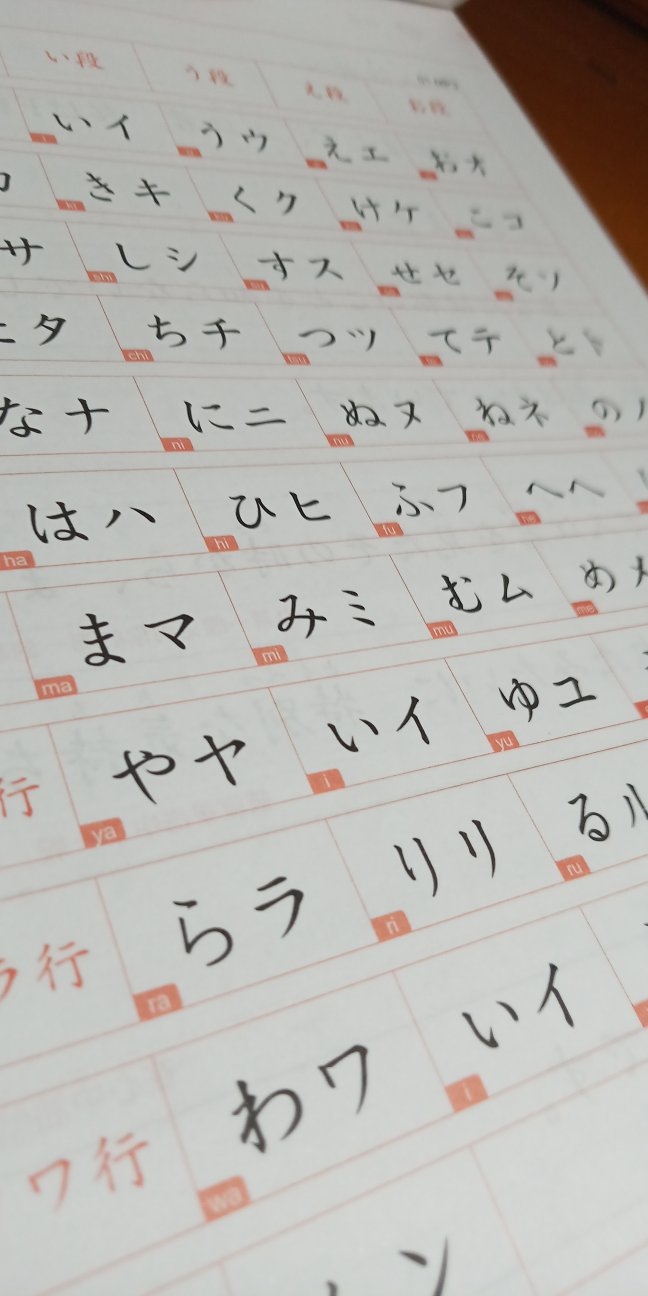 い段 う段 え段 お段
いイ うウ えエ おオ
i u
きキ くク けケ こコ
ki ku
サ しシ すス せセ そソ
shi su
タ ちチ つツ てテ とト
chi tsu te
なナ にニ ぬヌ ねネ のノ
ni nu ne
はハ ひヒ ふフ へヘ
ha hi fu he
まマ みミ むム めメ
ma mi mu me
行 やヤ いイ ゆユ
ya i yu
ラ行 らラ りリ るル
ra ri ru
ワ行 わワ いイ
wa i
ン